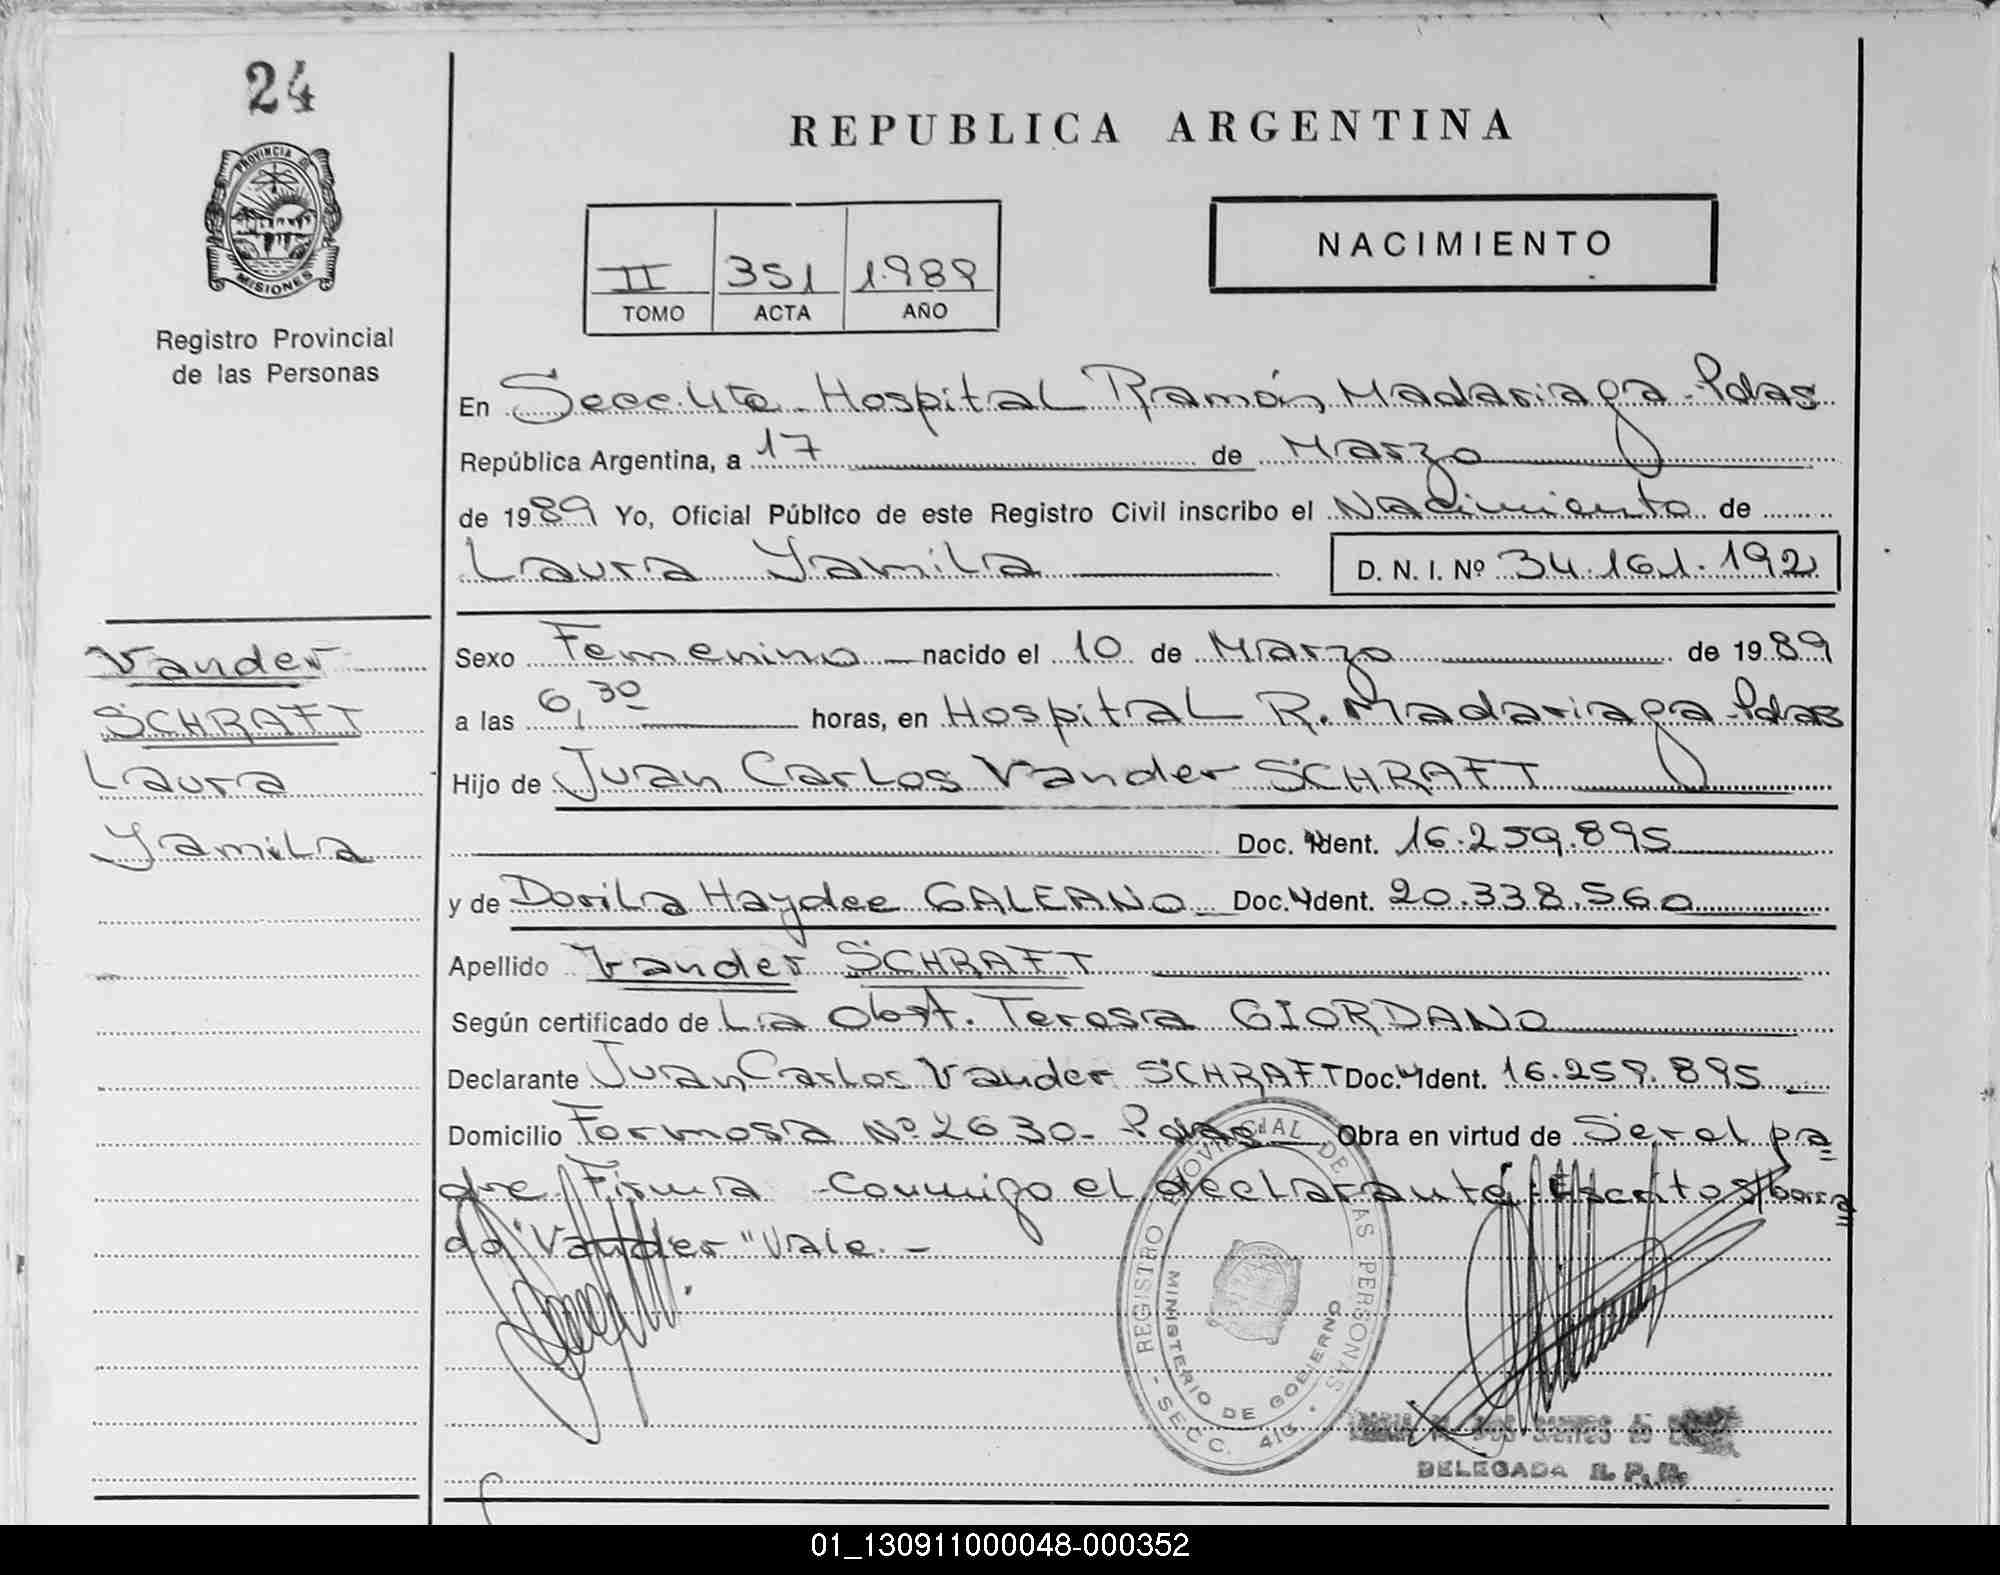 24
PROVINCIA DE
MISIONES
Registro Provincial
de las Personas
REPUBLICA ARGENTINA
II 351 1989
TOMO ACTA AÑO
NACIMIENTO
En Secc. 4ta. Hospital Ramón Madariaga - Pdas
República Argentina, a 17 de Marzo
de 1989 Yo, Oficial Público de este Registro Civil inscribo el Nacimiento de
Laura Yamila D. N. I. Nº 34.161.192
Vander
SCHRAFT
Laura
Yamila
Sexo Femenino nacido el 10 de Marzo de 1989
a las 6,30 horas, en Hospital R. Madariaga - Pdas
Hijo de Juan Carlos Vander SCHRAFT
Doc. Ident. 16.259.895
y de Dorila Haydee GALEANO Doc. Ident. 20.338.560
Apellido Vander SCHRAFT
Según certificado de La Obst. Teresa GIORDANO
Declarante Juan Carlos Vander SCHRAFT Doc. Ident. 16.259.895
Domicilio Formosa Nº 2630 - Pdas Obra en virtud de Ser el pa
dre Firma conmigo el declarante. Escrito s/borra
do "Vander" Vale. -
REGISTRO PROVINCIAL DE LAS PERSONAS
MINISTERIO DE GOBIERNO
- SECC.
DELEGADA R. P. P.
01_130911000048-000352